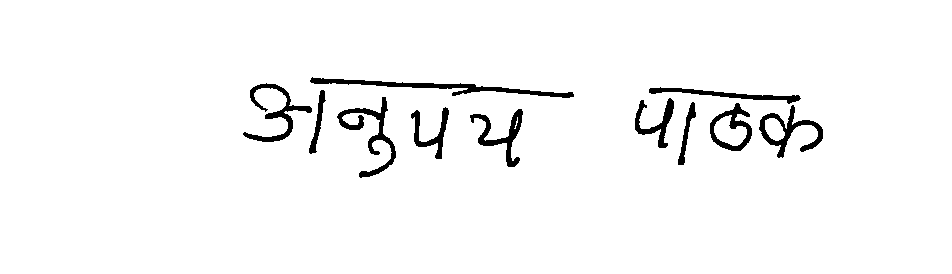 अनुपय पाठक